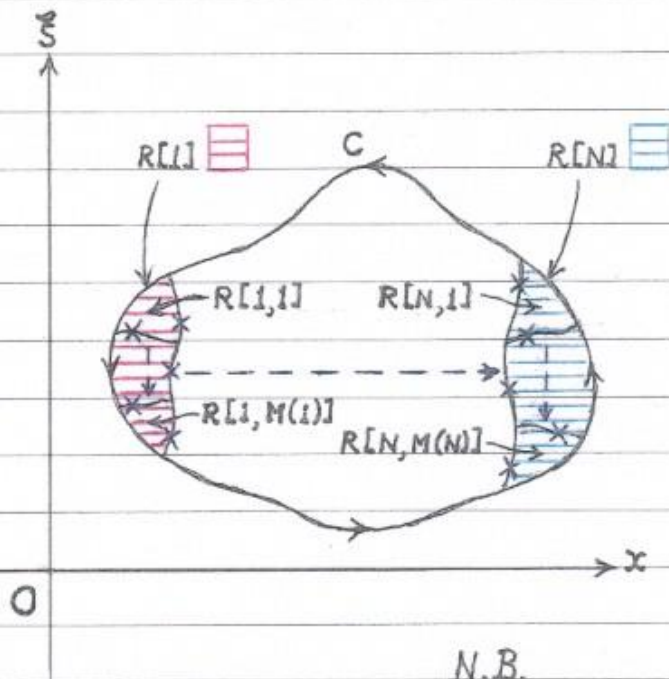 ξ
C
R[1] R[N]
R[1,1] R[N,1]
R[1,M(1)]
R[N,M(N)]
x
O
N.B.